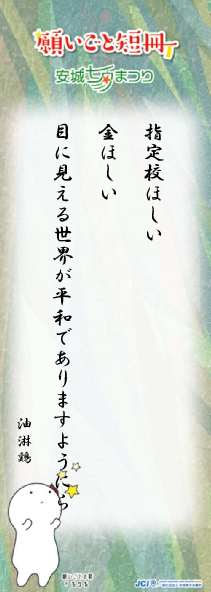 願いごと短冊
安城七夕まつり
指定校ほしい
金ほしい
目に見える世界が平和でありますようにら
油淋鶏
JCI